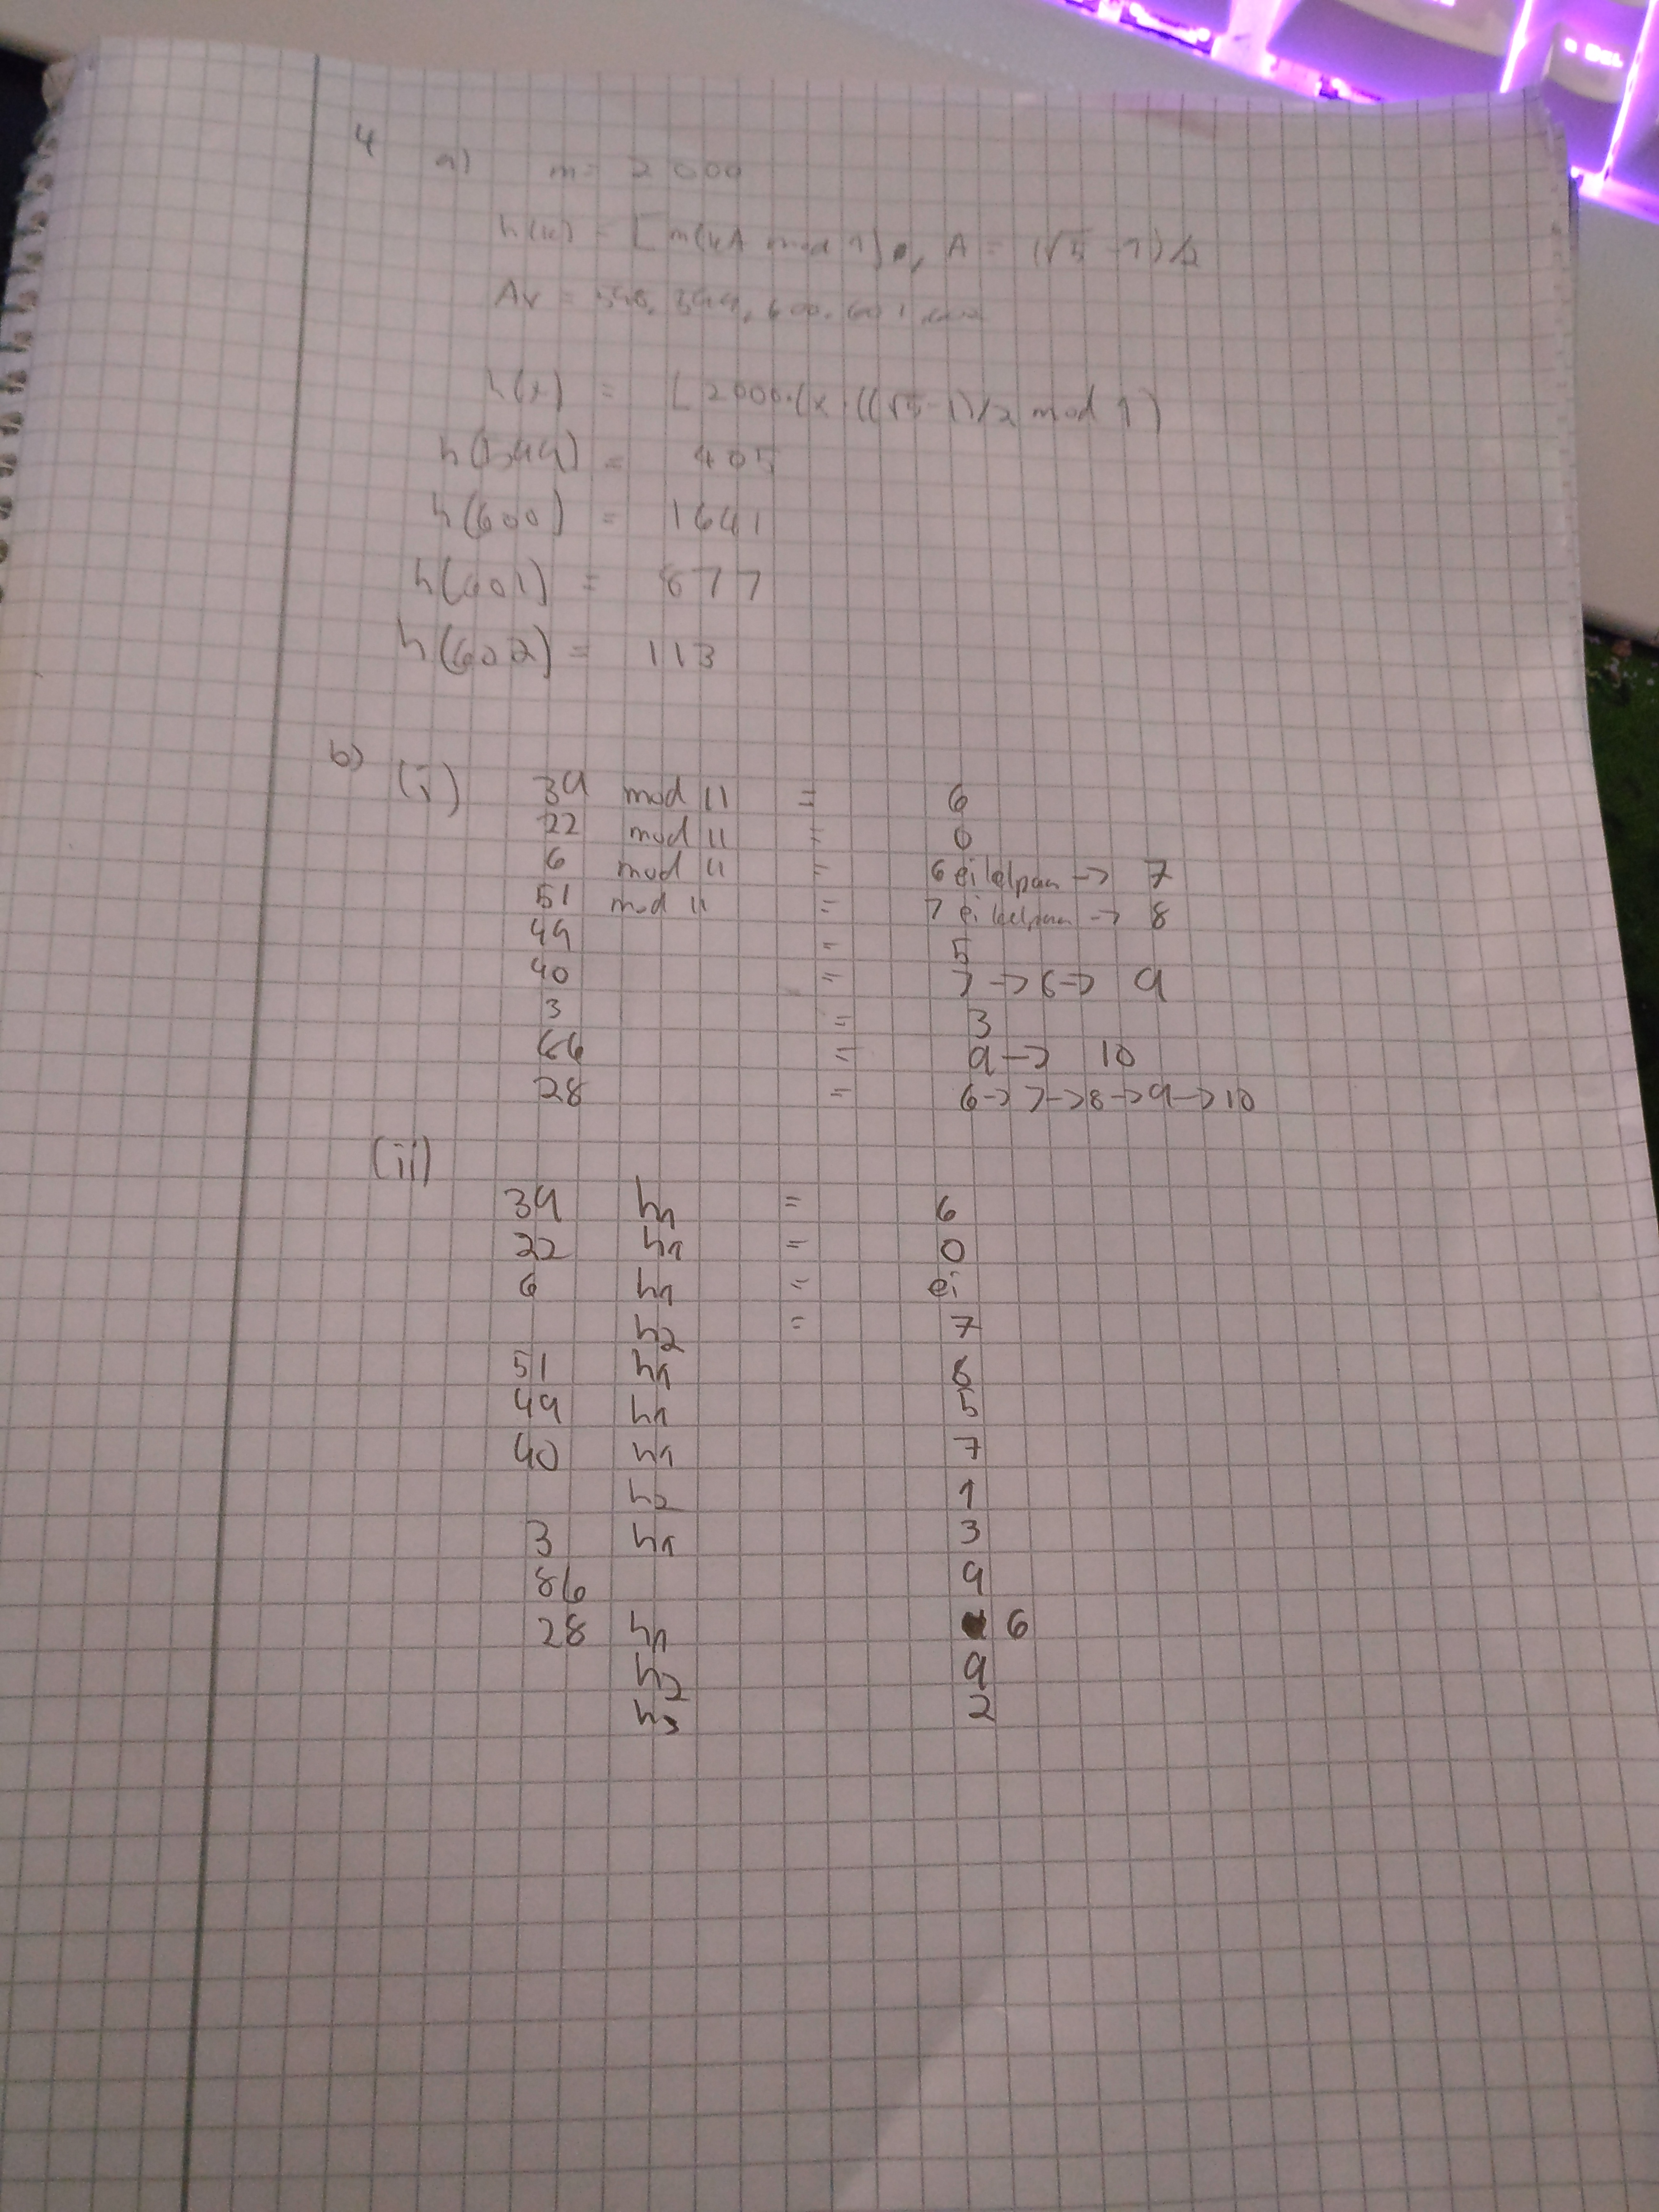 4 a) m = 2000
h(k) = ⌊m(kA mod 1)⌋, A = (√5 - 1)/2
Av = 598, 599, 600, 601, 602
h(x) = ⌊2000·(x·((√5-1)/2 mod 1)
h(599) = 405
h(600) = 1641
h(601) = 877
h(602) = 113
b) (i) 39 mod 11 = 6
22 mod 11 = 0
6 mod 11 = 6 ei kelpaa -> 7
51 mod 11 = 7 ei kelpaa -> 8
49 = 5
40 = 7 -> 8 -> 9
3 = 3
= 9 -> 10
28 = 6 -> 7 -> 8 -> 9 -> 10
(ii)
39 h1 = 6
22 h1 = 0
6 h1 = ei
h2 = 7
51 h1 8
49 h1 5
40 h1 7
h2 1
3 h1 3
86 9
28 h1 6
h2 9
h3 2